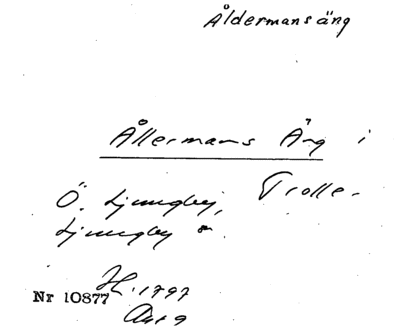 Åldermansäng
Ållermans Äng i
Ö. Ljungby, Trolle-
Ljungby s.
H. 1797
Nr 10877
Akt 9